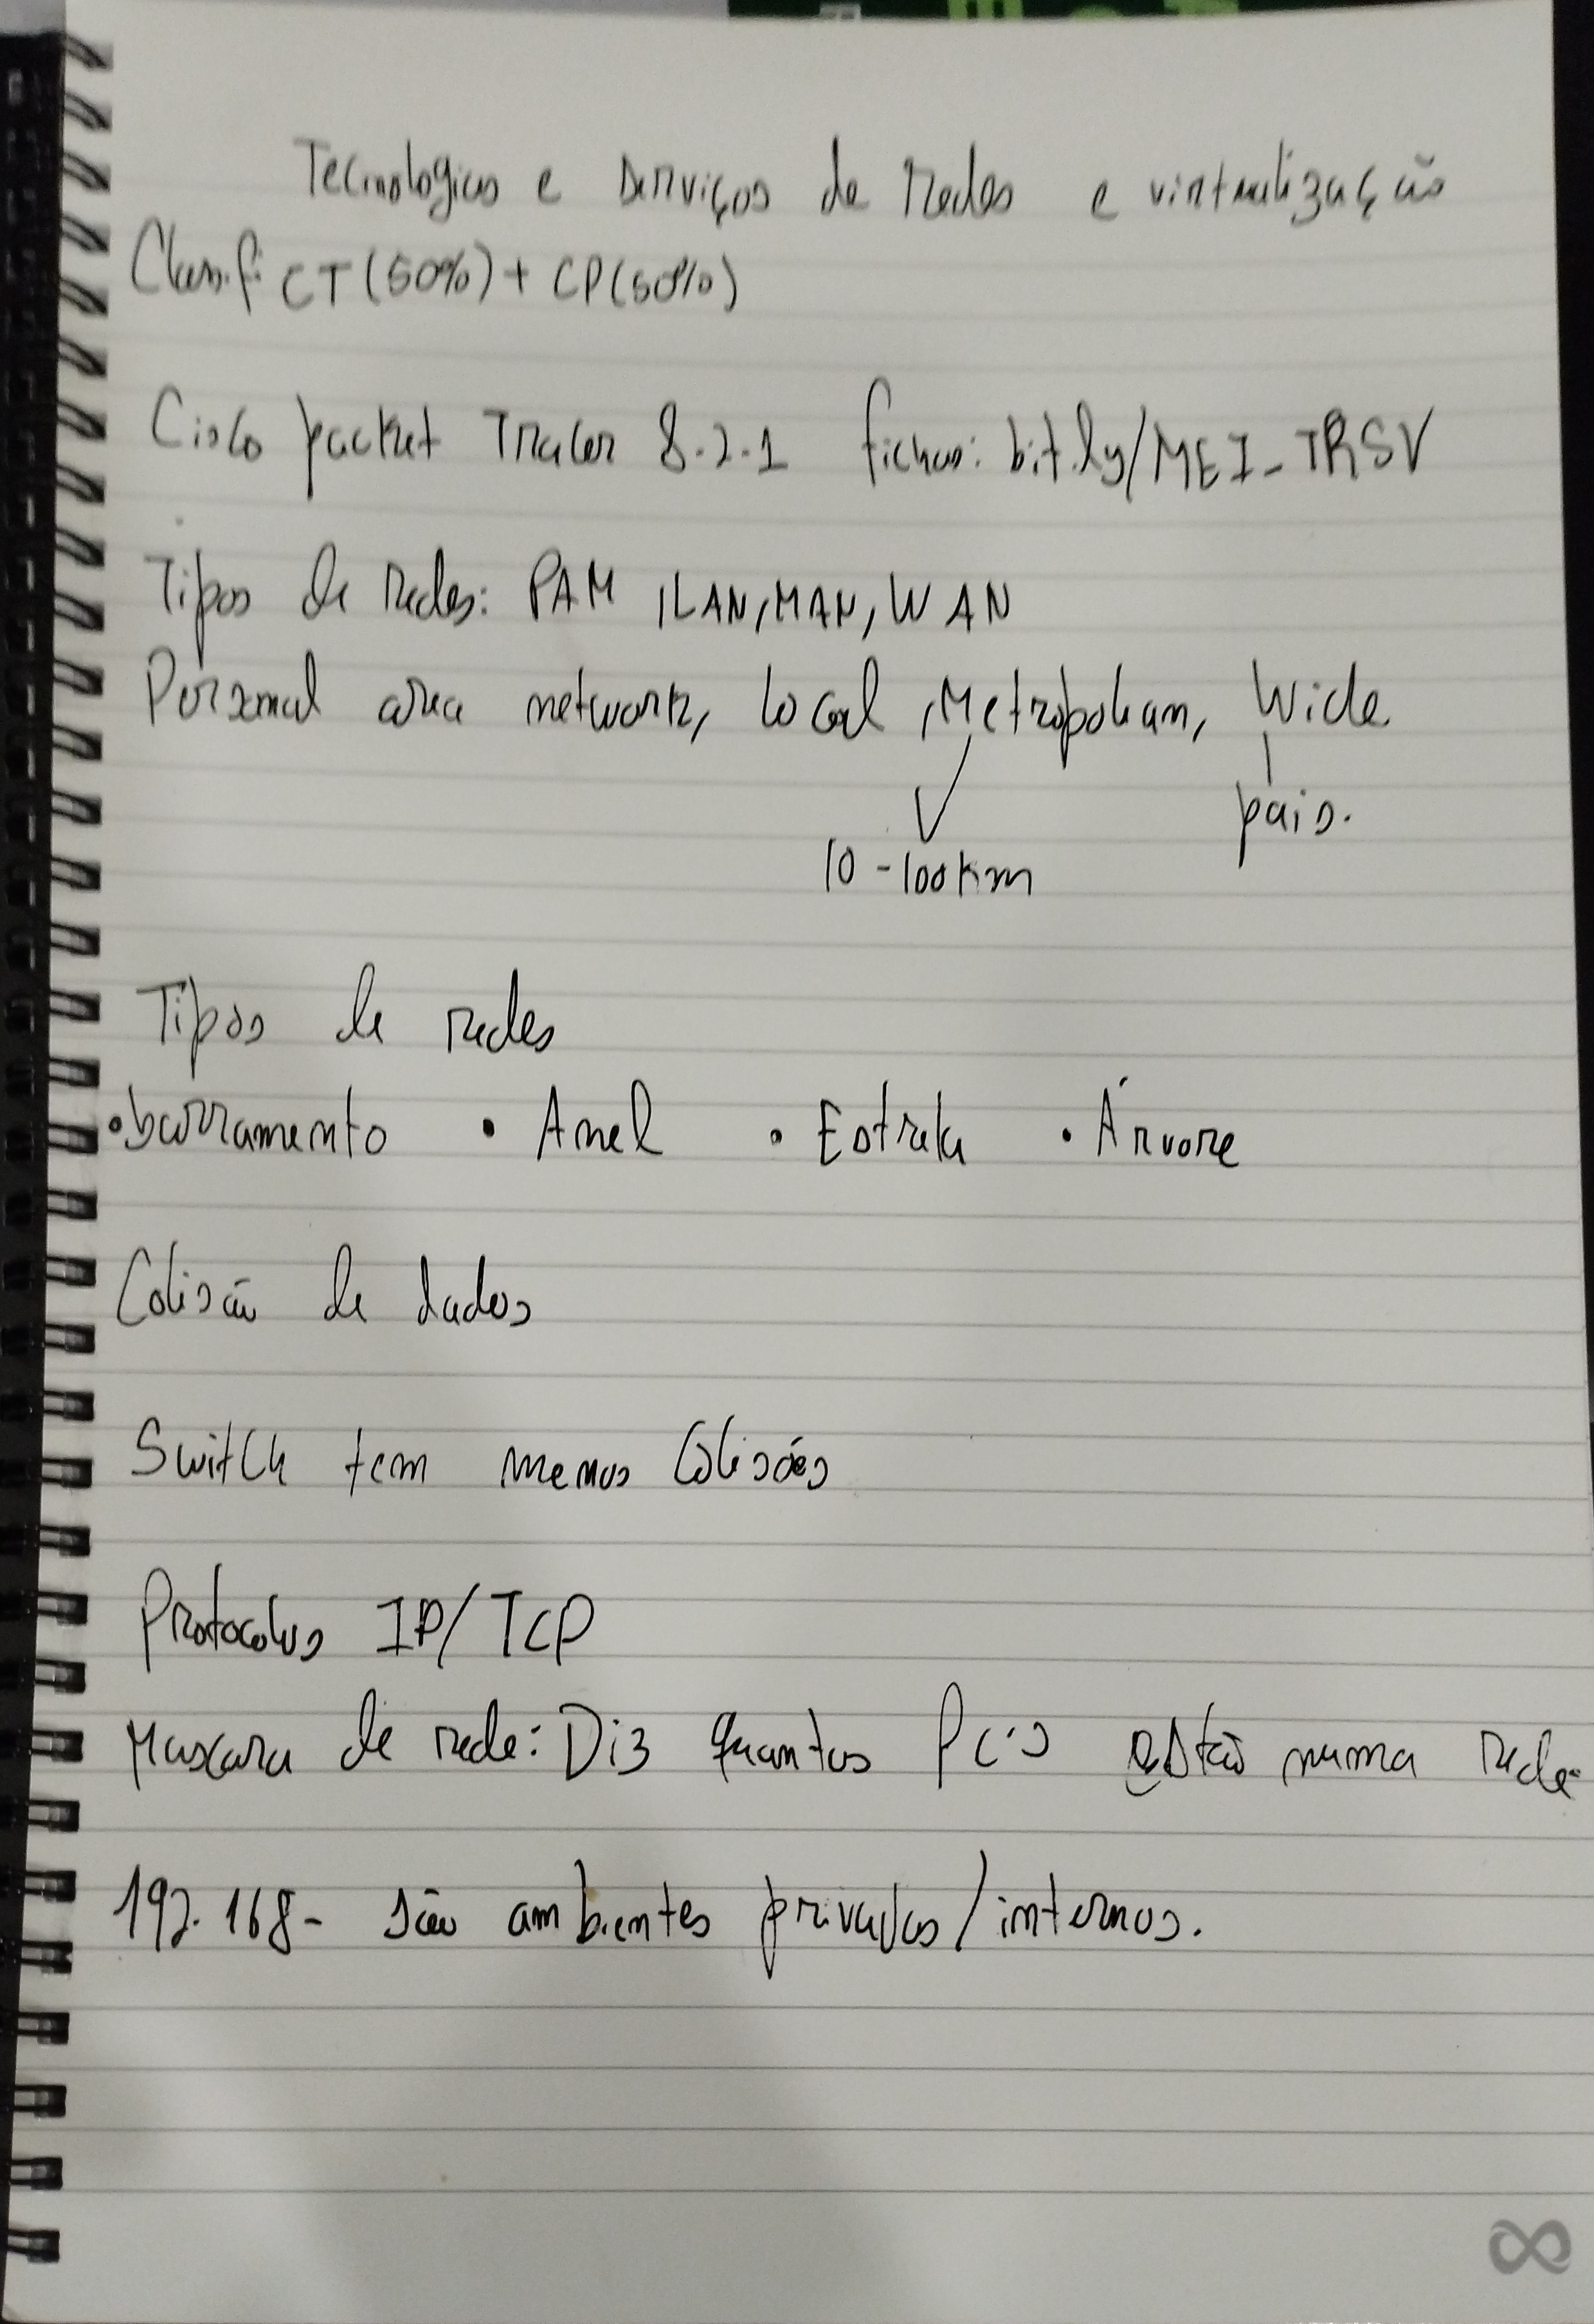 Tecnologias e serviços de redes e virtualização
Classif: CT (50%) + CP (50%)
Cisco packet Tracer 8.2.1 fichas: bit.ly/MEI_TRSV
Tipos de redes: PAM, LAN, MAN, WAN
Personal area network, local, Metropolian, Wide.
país.
10-100km
Tipos de redes
• barramento • Anel • Estrela • Árvore
Colisão de dados
Switch tem menos colisões
Protocolos IP/TCP
Mascara de rede: Diz quantos PC's estão numa rede.
192.168- são ambientes privados/internos.